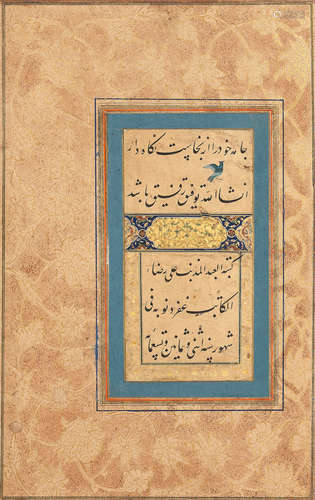 جامه خود را از نجاست نگاه دار
انشاالله توفیق رفیق باشد
کتبه العبد المذنب علی رضا
الکاتب غفر ذنوبه فی
شهور سنه اثنی و ثمانین و تسعمائه